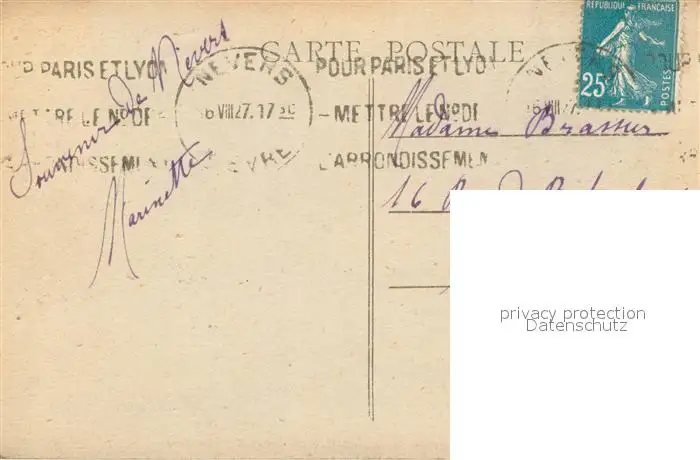 CARTE POSTALE
RÉPUBLIQUE FRANÇAISE
25c
POSTES
POUR PARIS ET LYON
METTRE LE No DE
L'ARRONDISSEMENT
NEVERS
6 VIII 27. 17
NIÈVRE
POUR PARIS ET LYO
- METTRE LE No DE
L'ARRONDISSEMEN
Souvenir de Nevers
Marinette
Madame Brasseur
16 R
privacy protection
Datenschutz